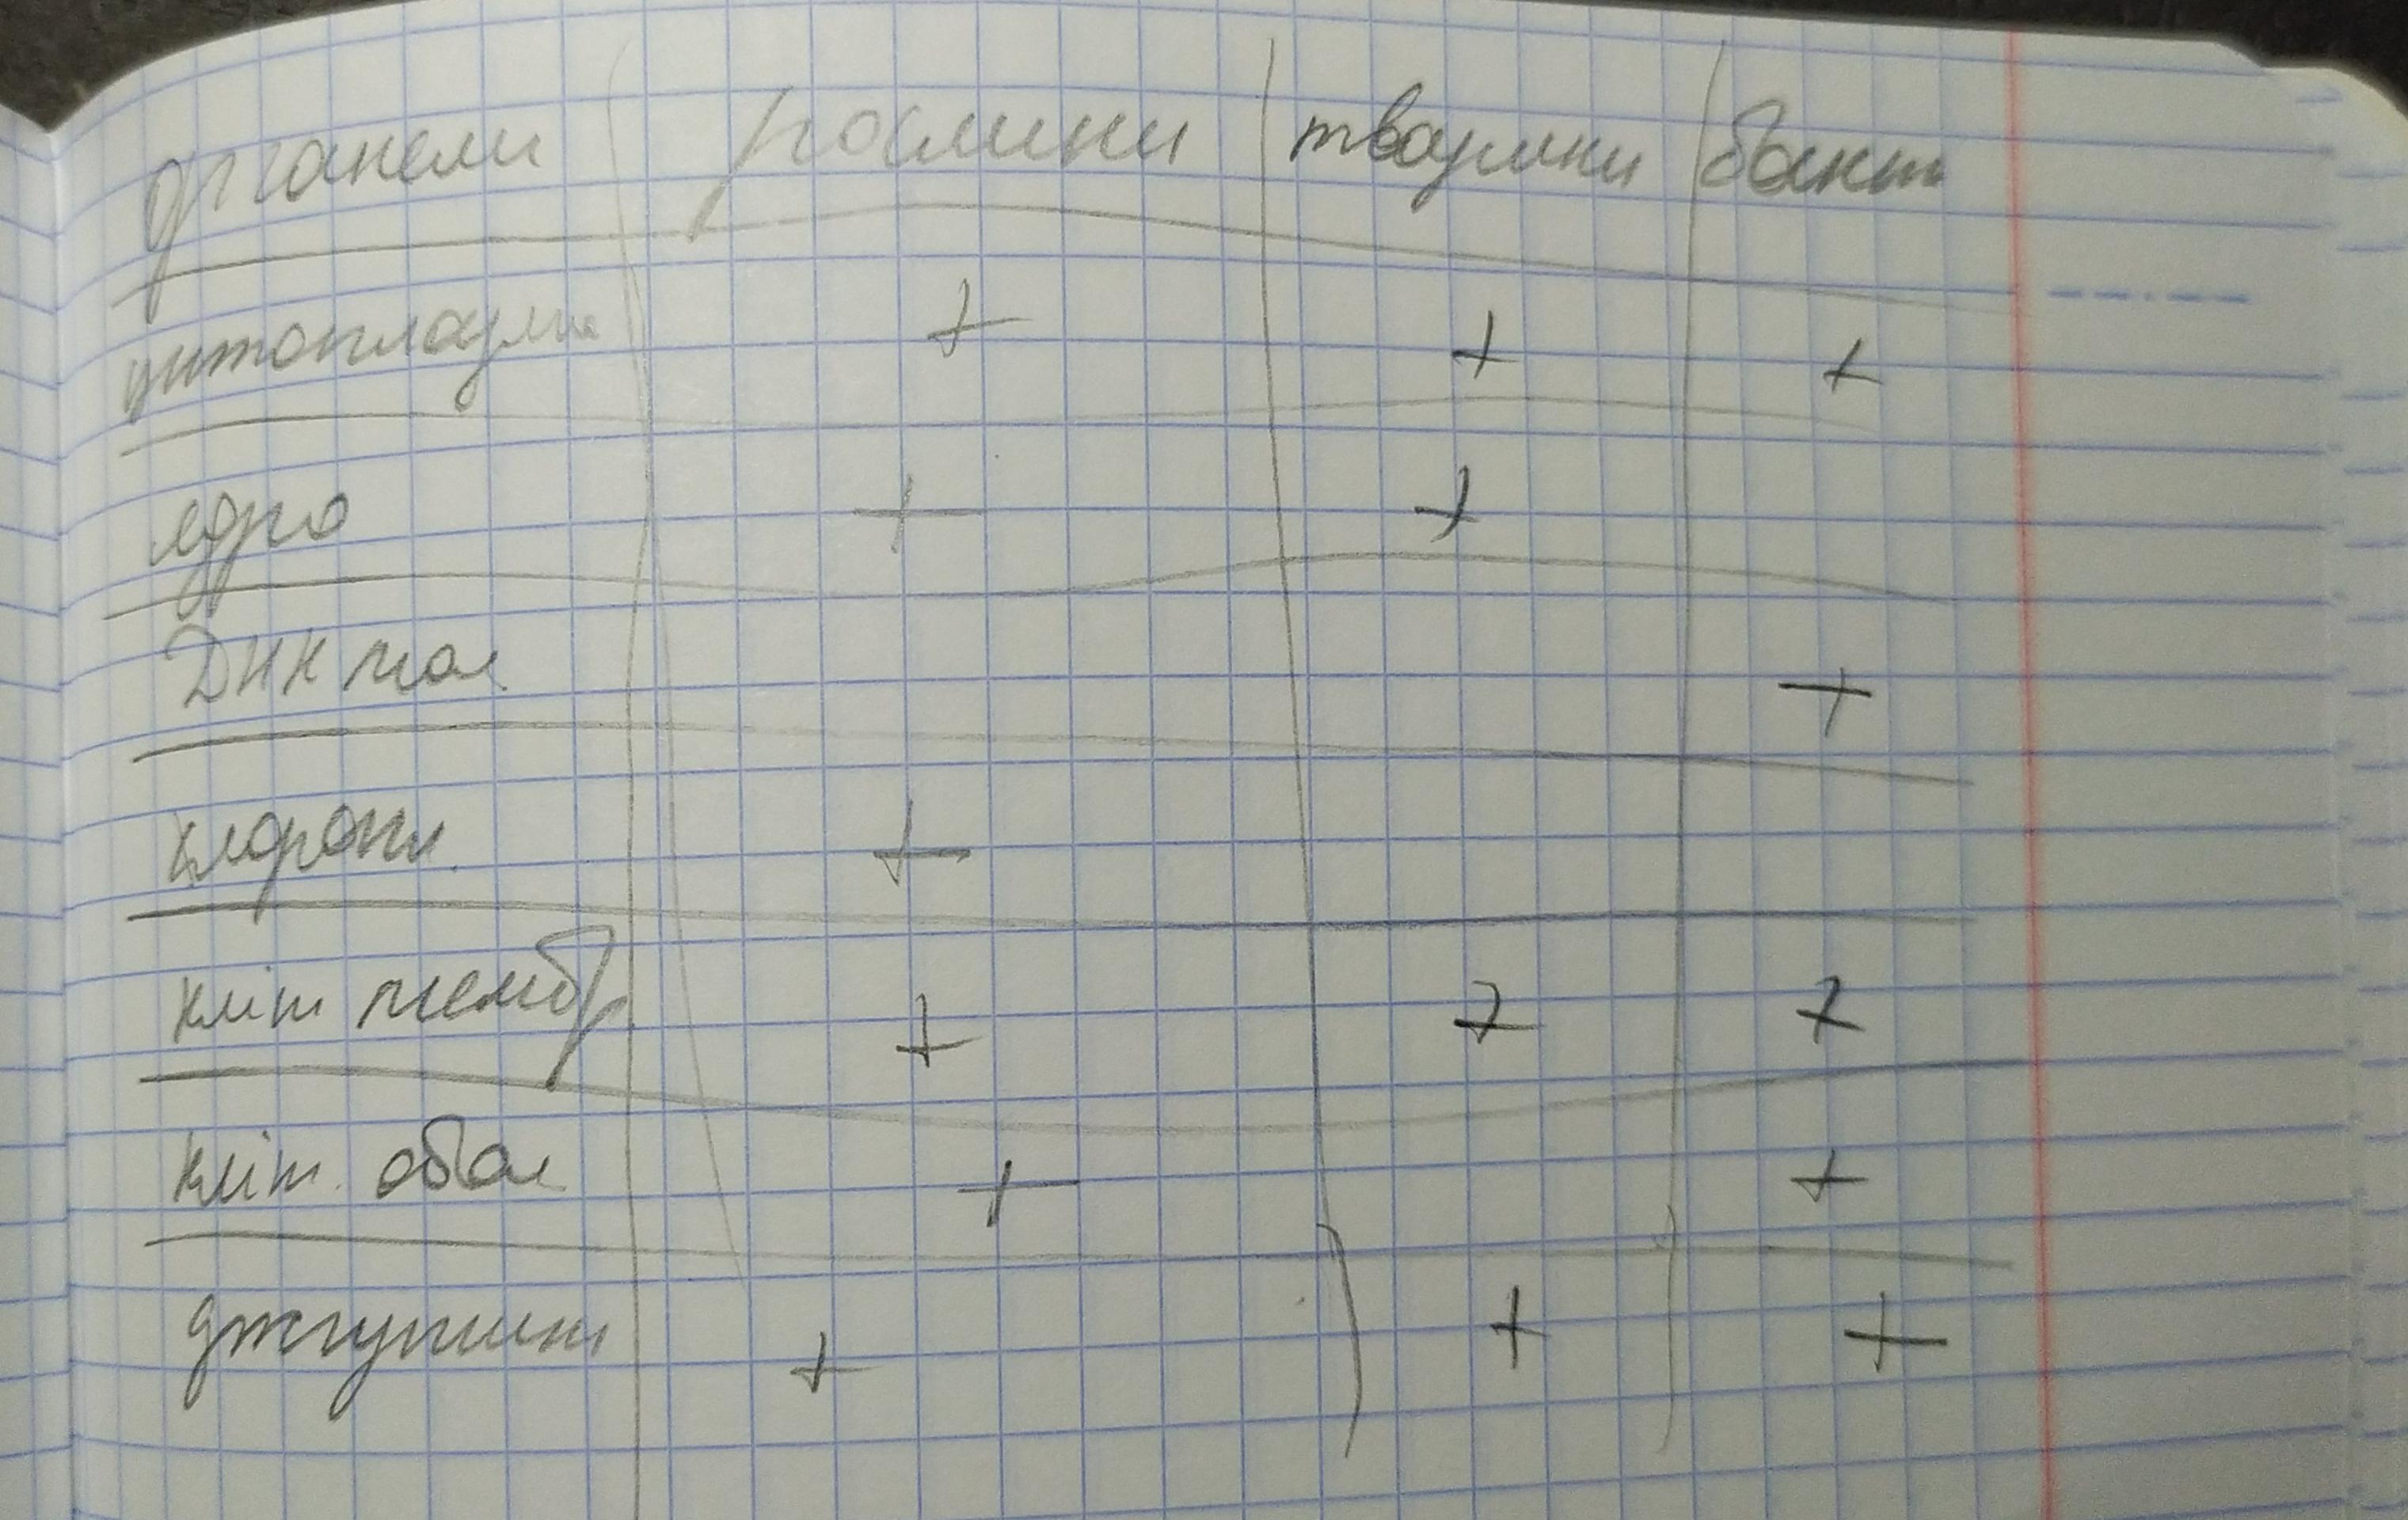 органели рослини тварини бакт
цитоплазма + + +
ядро + +
ДНК мол +
хлоропл. +
кліт мемб + + +
кліт. обол + +
джгутики + + +